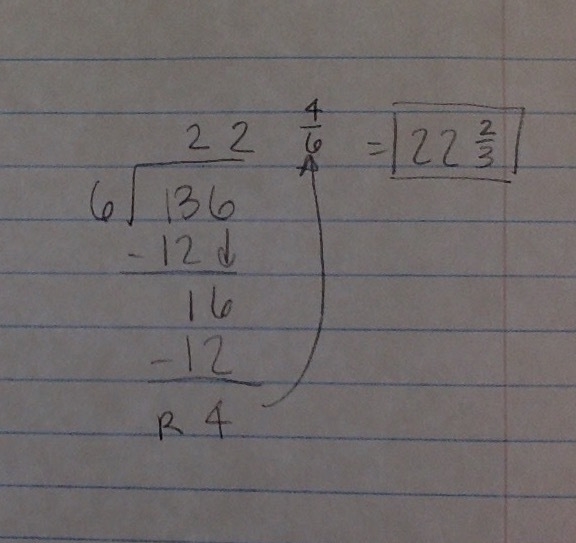 22 4/6 = 22 2/3
6 136
- 12 ↓
16
-12
R 4